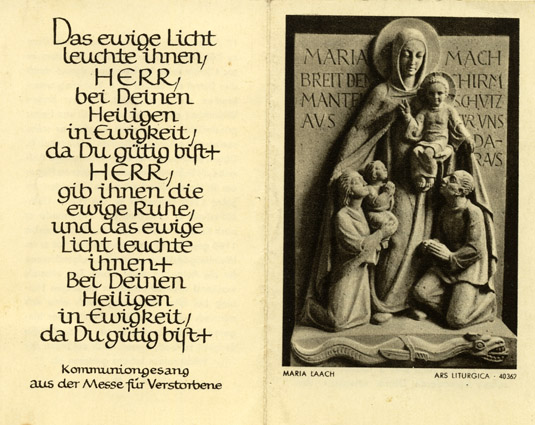 Das ewige Licht
leuchte ihnen,
HERR,
bei Deinen
Heiligen
in Ewigkeit,
da Du gütig bist+
HERR,
gib ihnen die
ewige Ruhe,
und das ewige
Licht leuchte
ihnen+
Bei Deinen
Heiligen
in Ewigkeit,
da Du gütig bist+
Kommuniongesang
aus der Messe für Verstorbene
MARIA MACH
BREIT DEN SCHIRM
MANTEL SCHVTZ
AVS FVR VNS
DA-
RAVS
MARIA LAACH
ARS LITURGICA · 40367